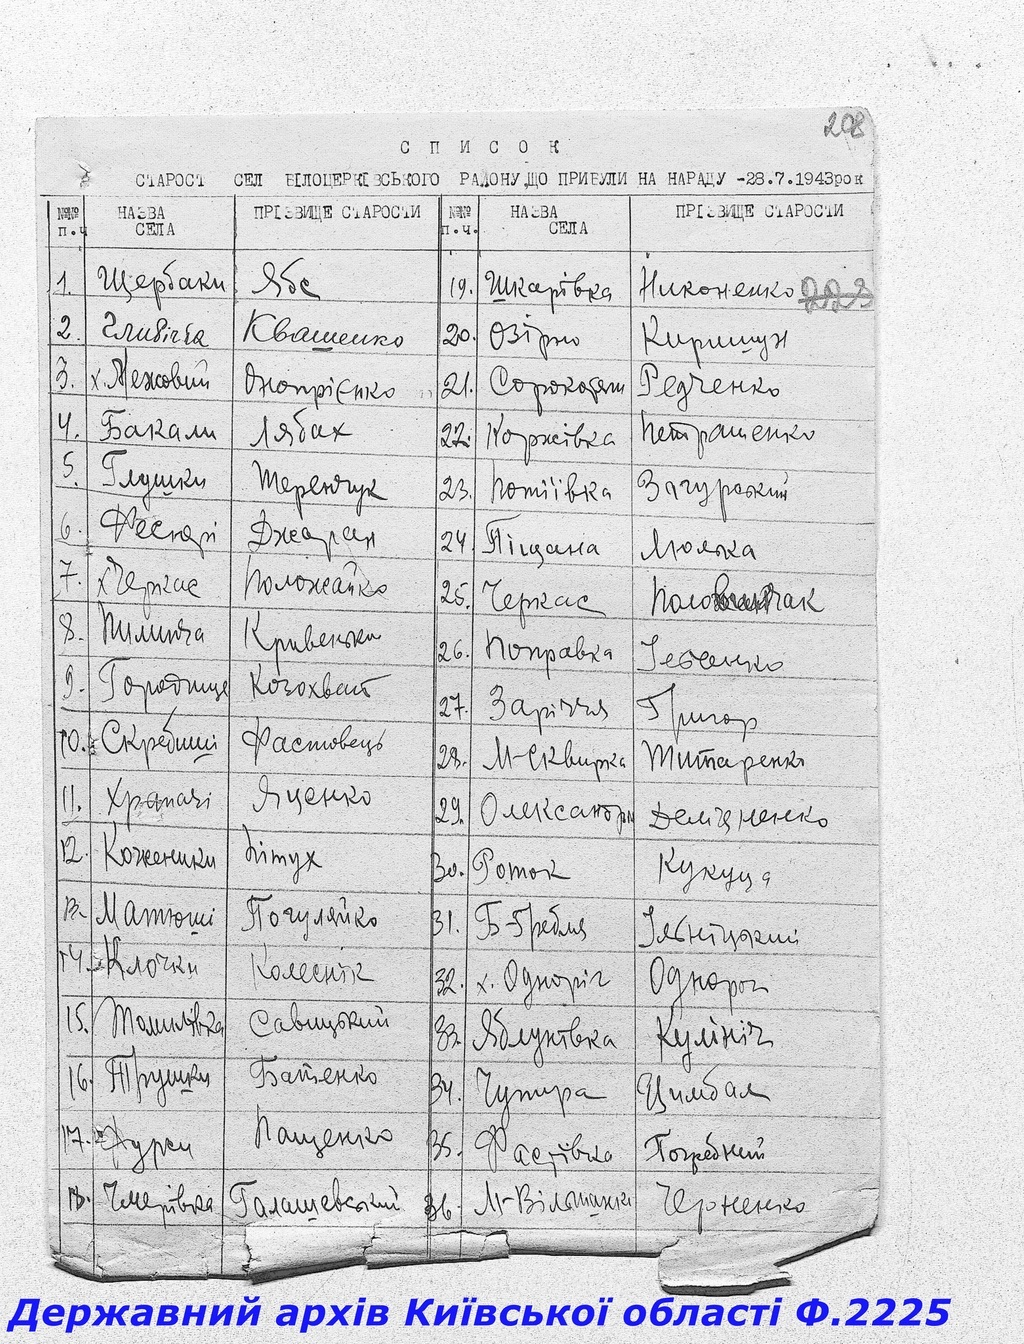 208
СПИСОК
СТАРОСТ СЕЛ БІЛОЦЕРКІВСЬКОГО РАЙОНУ,ЩО ПРИБУЛИ НА НАРАДУ -28.7.1943рок
№№ п.ч НАЗВА СЕЛА ПРІЗВИЩЕ СТАРОСТИ №№ п.ч. НАЗВА СЕЛА ПРІЗВИЩЕ СТАРОСТИ
1. Щербаки Ябс
2. Глибічка Квашенко
3. х.Межовий Онопрієнко
4. Бакали Лябах
5. Глушки Теренчук
6. Фесюрі Джаран
7. х Черкас Положайко
8. Пилипча Кривенько
9. Городище Козохват
10. Скребиші Фастовець
11. Храпачі Яценко
12. Коженики Пітух
13. Матюші Погуляйко
14. Клочки Колеснік
15. Томилівка Савицький
16. Трушки Батенко
17. Фурси Пащенко
18. Чмирівка Галашевський
19. Шкарівка Никоненко 223
20. Озірно Киришун
21. Сорокотяги Редченко
22. Коржівка Петрашенко
23. Потіївка Загурський
24. Піщана Люлька
25. Черкас
26. Поправка Івченко
27. Заріччя Григор
28. М-Сквирка Титаренко
29. Олександрія Демяненко
30. Роток Кукуца
31. Б-Гребля Ільніцький
32. х. Одноріг Однорог
33. Яблунівка Кулініч
34. Чупира Цимбал
35. Фастівка Погребний
36. М-Вільшанка Черненко
Державний архів Київської області Ф.2225